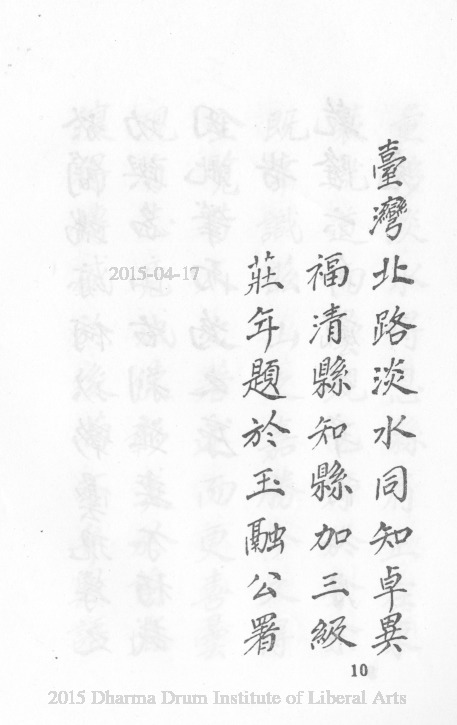 臺灣北路淡水同知卓異
福清縣知縣加三級
莊年題於玉融公署
2015-04-17
10
2015 Dharma Drum Institute of Liberal Arts